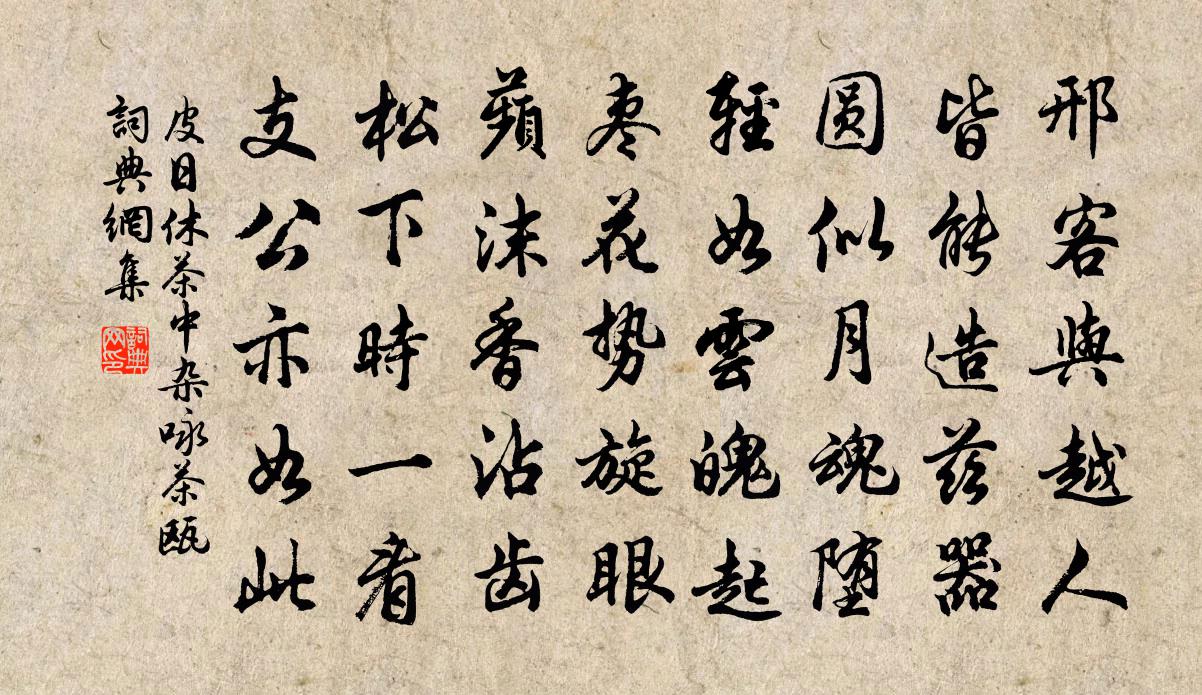 邢客與越人
皆能造茲器
圓似月魂墮
輕如雲魄起
枣花势旋眼
蘋沫香沾齿
松下時一看
支公亦如此
皮日休茶中杂咏茶瓯
詞典網集
詞典網印